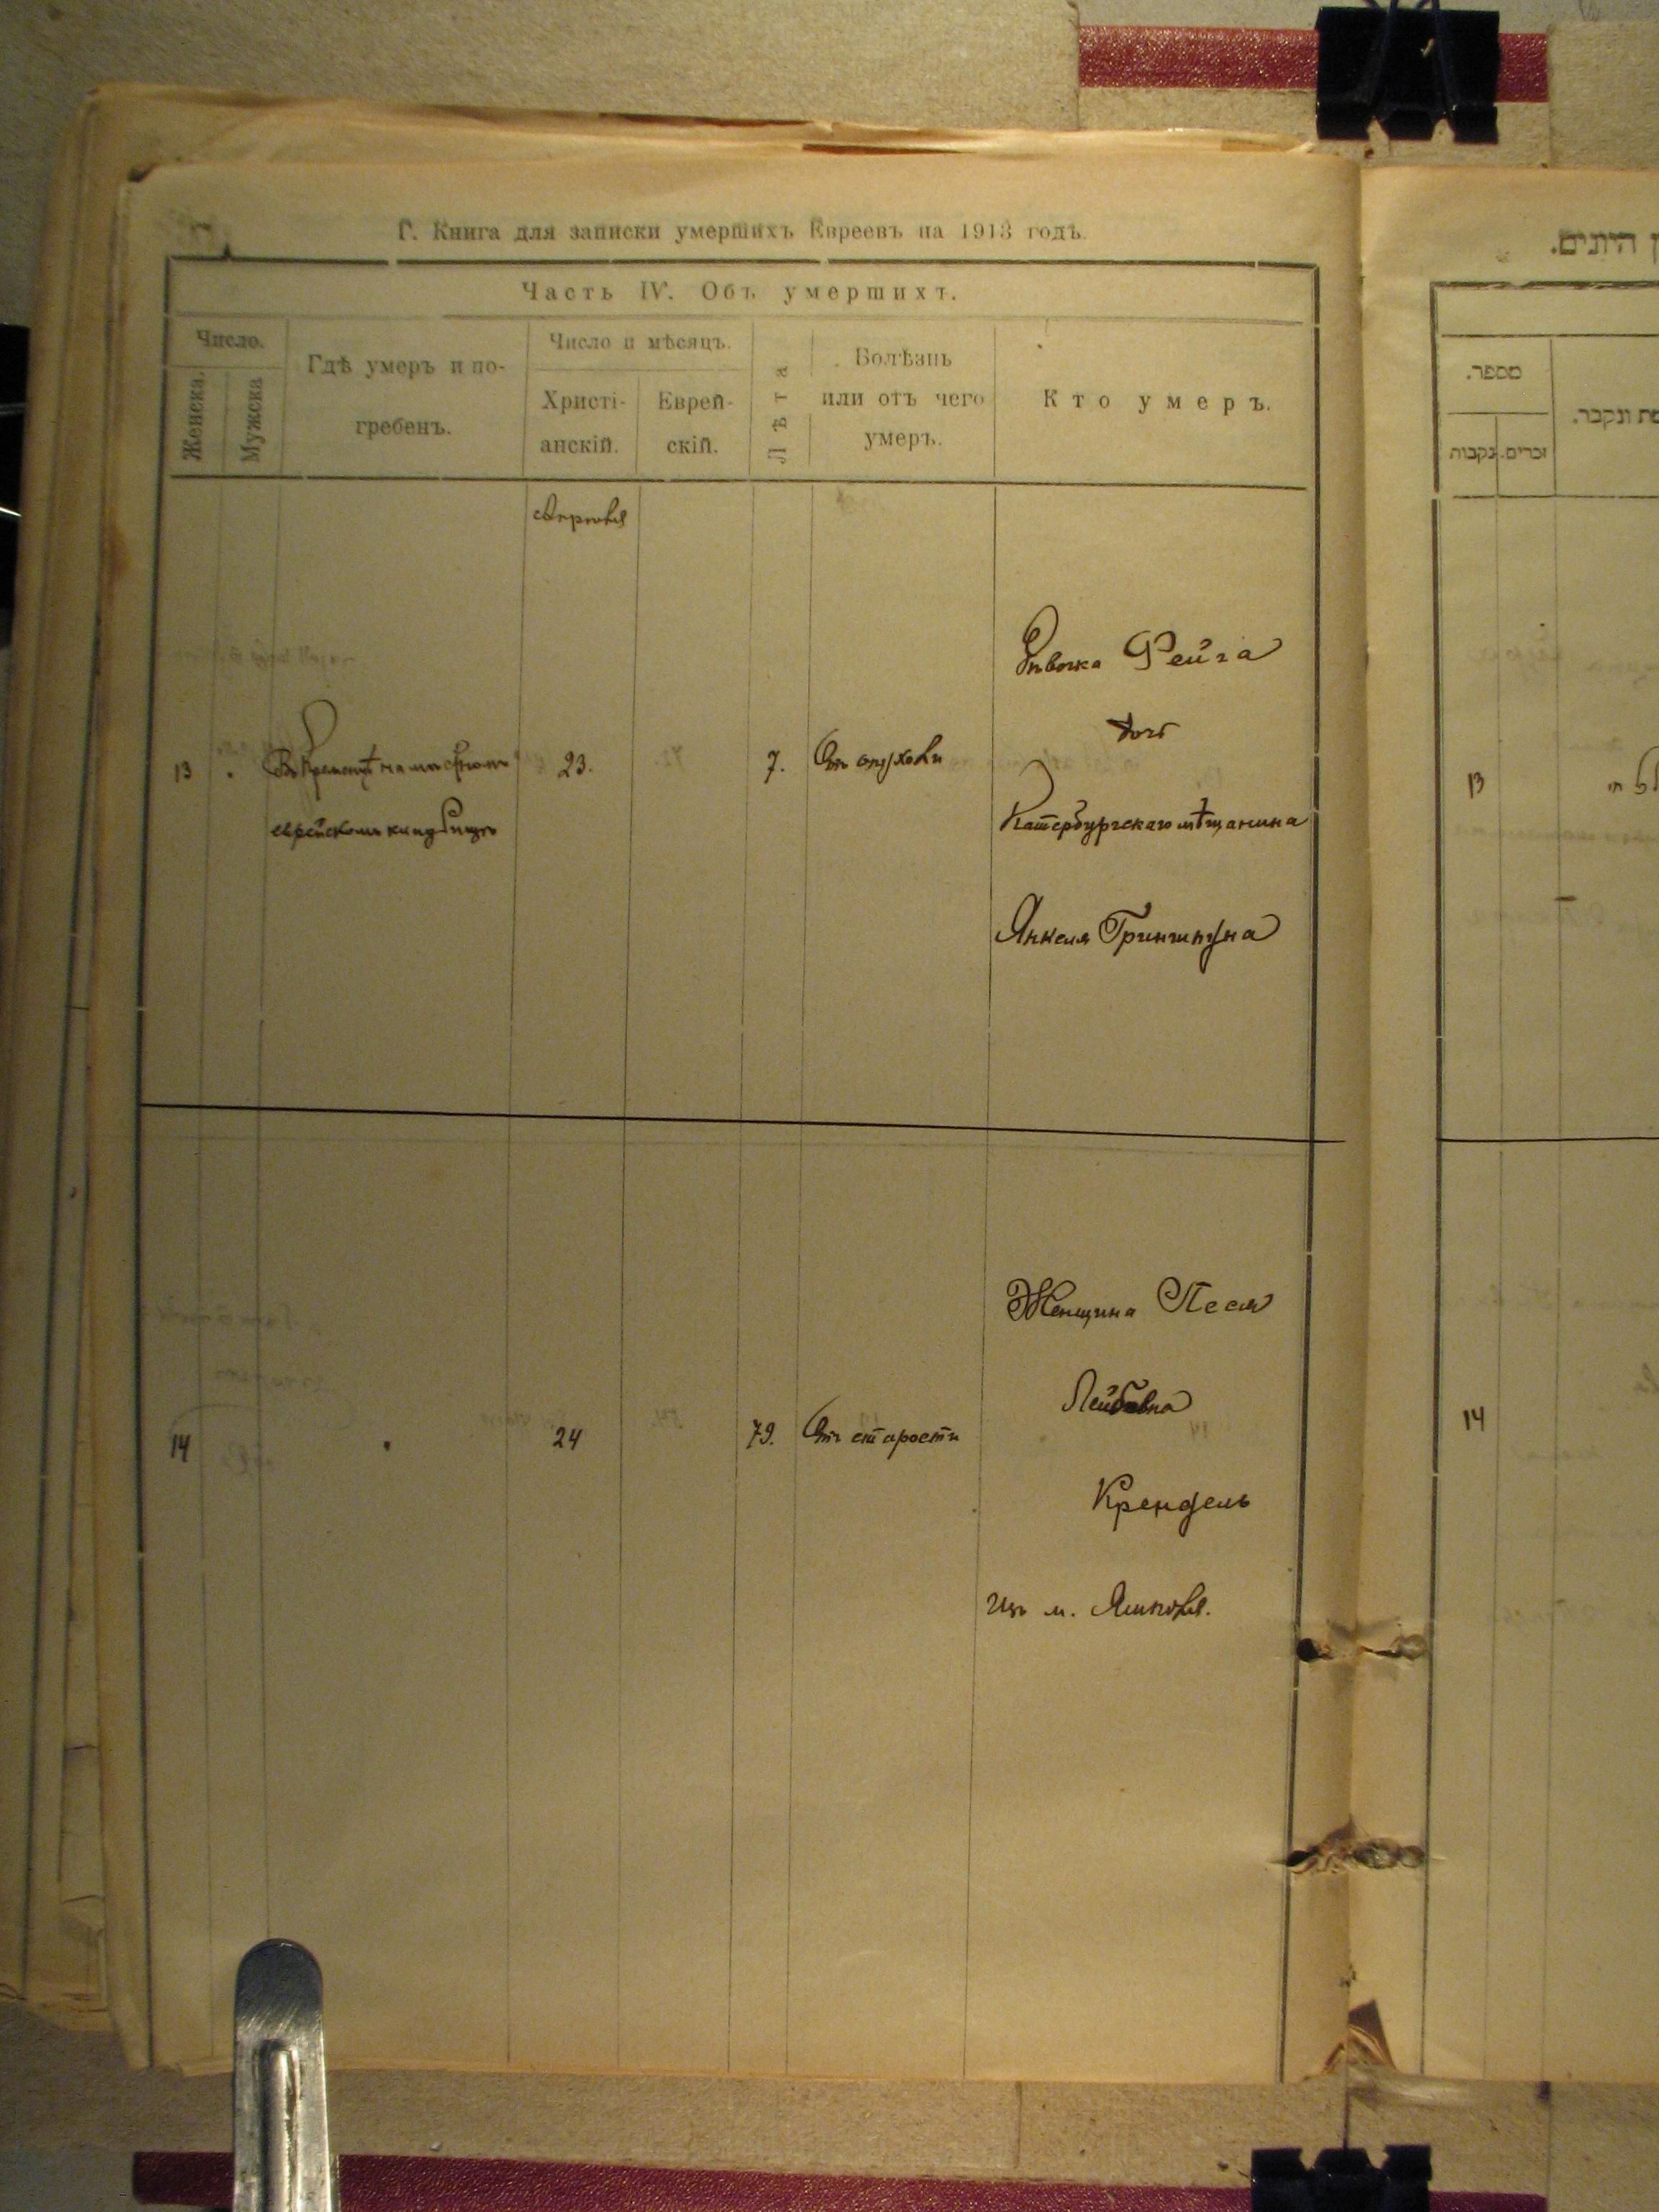 Г. Книга для записки умершихъ Евреевъ на 1913 годъ.
Часть IV. Объ умершихъ.
Число.
Женска.
Мужска
Гдѣ умеръ и по-
гребенъ.
Число и мѣсяцъ.
Христі-
анскій.
Еврей-
скій.
Лѣта
Болѣзнь
или отъ чего
умеръ.
Кто умеръ.
Апрѣля
13
Въ Кременцѣ на мѣстномъ
еврейскомъ кладбищѣ
23.
7.
Отъ опухоли
Дѣвочка Фейга
дочь
Катербургскаго мѣщанина
Янкеля Гриншпуна
14
"
24
79.
Отъ старости
Женщина Песя
Лейбовна
Крендель
изъ м. Ямполя.
היתים.
מספר.
נקבות
זכרים.
ונקבר.
13
14